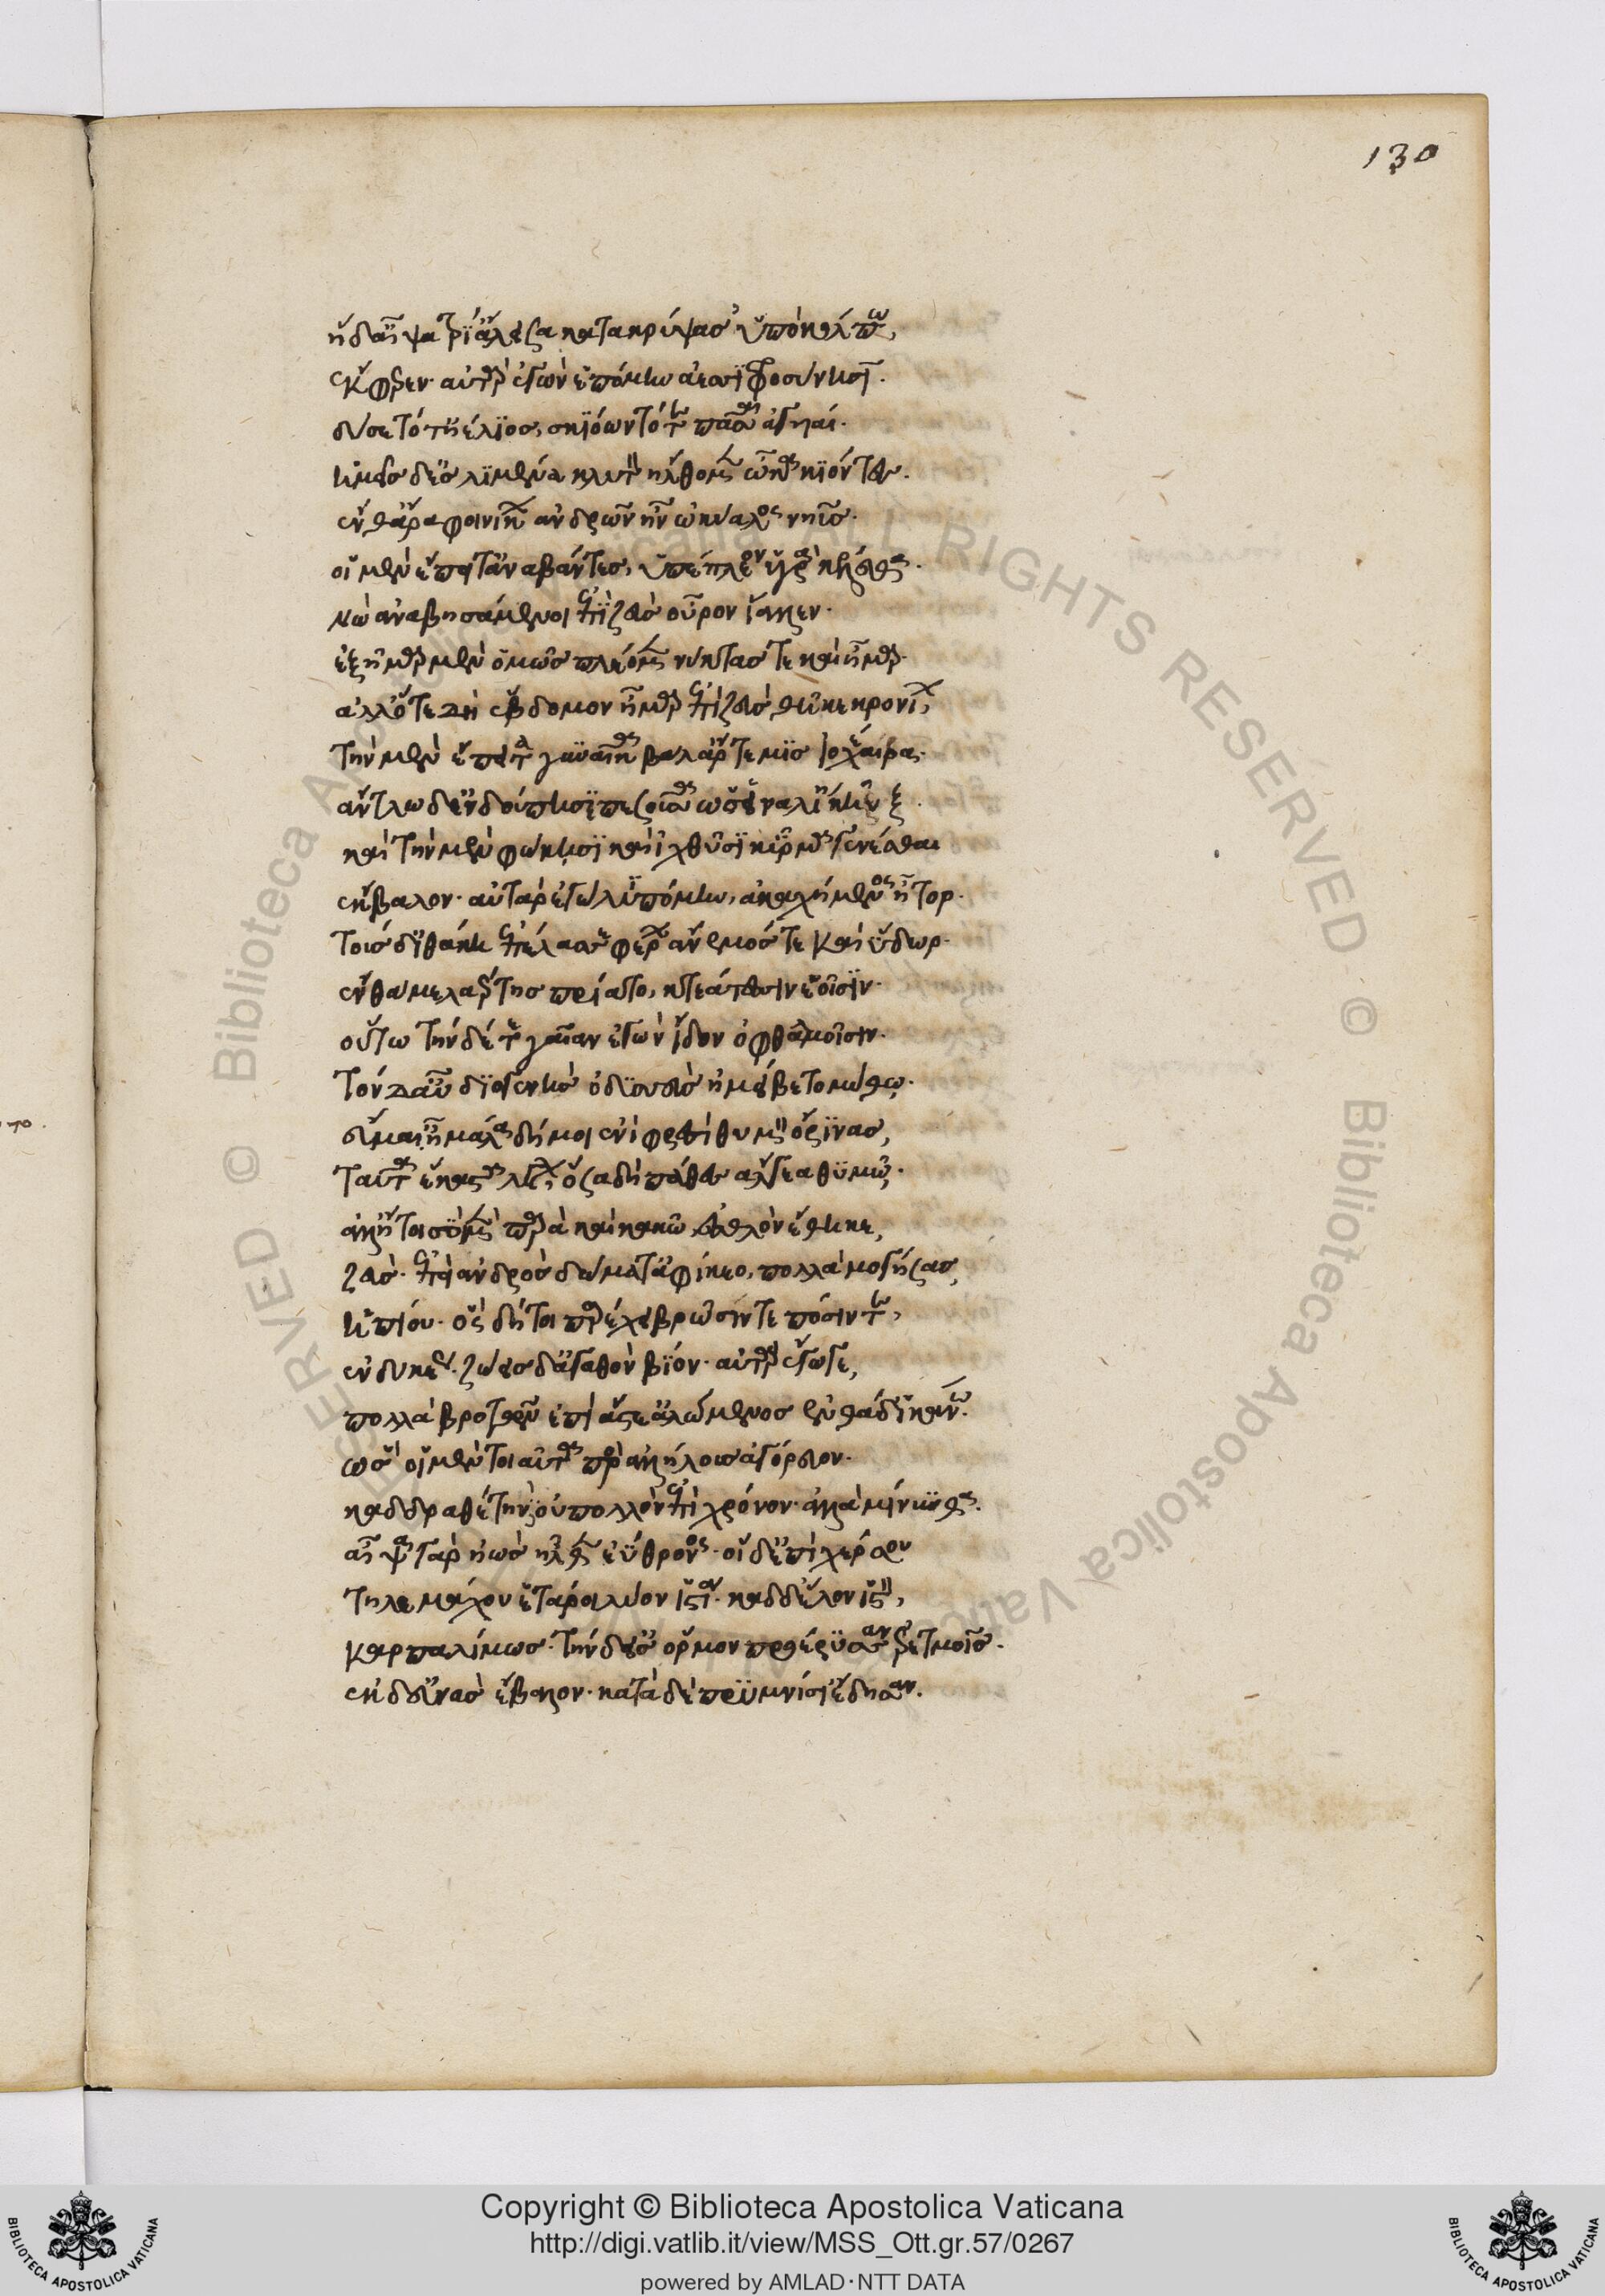 130
ἡ δ' αἶψα τρί' ἄλεισα κατακρύψασ' ὑπὸ κόλπω,
ἔκφερεν· αὐτὰρ ἐγὼν ἑπόμην ἀεσιφροσύνησι.
δύσετό τ' ἠέλιος, σκιόωντό τε πᾶσαι ἀγυιαί.
ἡμεῖς δ' ἐς λιμένα κλυτὸν ἤλθομεν ὦκα κιόντες.
ἔνθ' ἄρα φοινίκων ἀνδρῶν ἦν ὠκύαλος νηῦς.
οἱ μὲν ἔπειτ' ἀναβάντες, ἐπέπλεον ὑγρὰ κέλευθα.
νὼ ἀναβησάμενοι ἐπὶ ζεὺς οὖρον ἴαλλεν.
ἑξῆμαρ μὲν ὁμῶς πλέομεν νύκτας τε καὶ ἦμαρ.
ἀλλ' ὅτε δὴ ἕβδομον ἦμαρ ἐπὶ ζεὺς θῆκε κρονίων,
τὴν μὲν ἔπειτα γυναῖκα βάλ' ἄρτεμις ἰοχέαιρα.
ἄντλω δ' ἐνδούπησε πεσοῦσ' ὡς εἰναλίη κὴξ.
καὶ τὴν μὲν φώκησι καὶ ἰχθύσι κύρμα γενέσθαι
ἔκβαλον· αὐτὰρ ἐγὼ λιπόμην, ἀκαχήμενος ἦτορ.
τοὺς δ' ἰθάκη ἐπέλασσε φέρων ἄνεμός τε καὶ ὕδωρ.
ἔνθα με λαέρτης πρίατο, κτεάτεσσιν ἑοῖσιν.
οὕτω τήνδε τε γαῖαν ἐγὼν ἴδον ὀφθαλμοῖσιν.
τὸν δ' αὖ διογενὴς ὀδυσεὺς ἠμείβετο μύθω.
εὔμαι' ἦ μάλα δή μοι ἐνὶ φρεσὶ θυμὸν ὄρινας,
ταῦτα ἕκαστα λέγων ὅσα δὴ πάθες ἄλγεα θυμῶ.
ἀλλ' ἤτοι σοὶ μὲν παρὰ καὶ κακῶ ἐσθλὸν ἔθηκε,
ζεύς· ἐπεὶ ἀνδρὸς δώματ' ἀφίκεο, πολλὰ μογήσας,
ἠπίου· ὃς δή τοι παρέχει βρῶσίν τε πόσιν τε,
ἐνδυκέως· ζώεις δ' ἀγαθὸν βίον· αὐτὰρ ἔγωγε,
πολλὰ βροτῶν ἐπὶ ἄστε' ἀλώμενος ἐνθάδ' ἱκάνω.
ὣς οἱ μὲν τοιαῦτα πρὸς ἀλλήλους ἀγόρευον.
καδδραθέτην οὐ πολλὸν ἐπὶ χρόνον· ἀλλὰ μίνυνθα.
αἶψα γὰρ ἠὼς ἦλθεν ἐύθρονος· οἱ δ' ἐπὶ χέρσου
τηλεμάχου ἕταροι λύον ἱστία· καδ δ' ἕλον ἱστὸν,
καρπαλίμως· τὴν δ' εἰς ὅρμον προέρυσσαν ἐρετμοῖς.
ἐκ δ' εὐνὰς ἔβαλον· κατὰ δὲ πρυμνήσι' ἔδησαν.
Copyright © Biblioteca Apostolica Vaticana
http://digi.vatlib.it/view/MSS_Ott.gr.57/0267
powered by AMLAD·NTT DATA